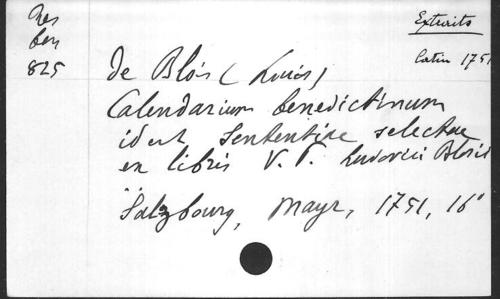 Res
ben
825
Extraits
Latin 1751
de Blois (Louis)
Calendarium benedictinum
id est Sententiae selectae
ex libris V. P. Ludovici Blosii
Salzbourg, Mayr, 1751, 16°